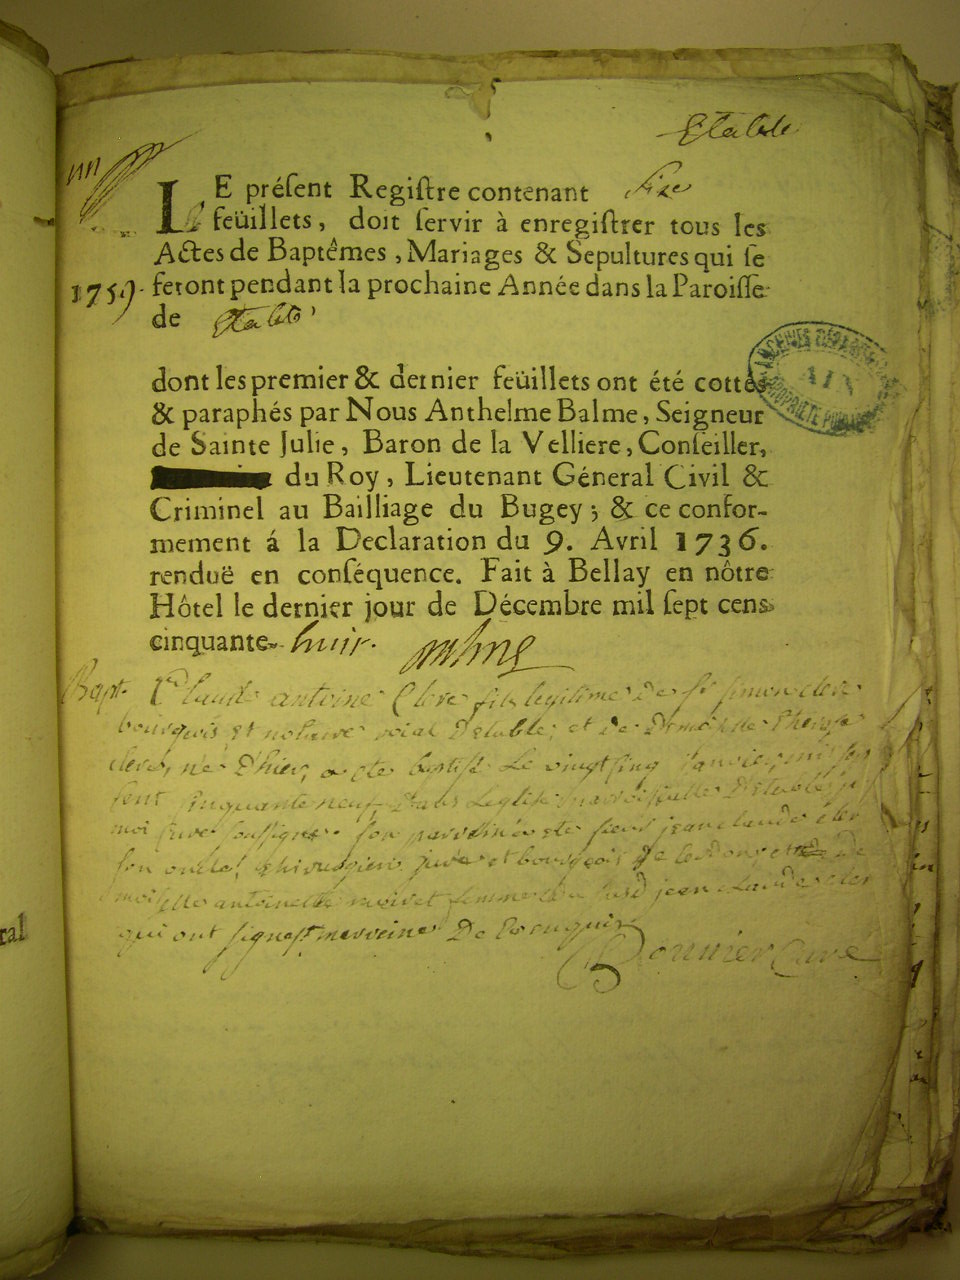 Etable
LE préſent Regiſtre contenant Six
feüillets, doit ſervir à enregiſtrer tous les
Actes de Baptêmes, Mariages & Sepultures qui ſe
1759. feront pendant la prochaine Année dans la Paroiſſe
de Etable
dont les premier & dernier feüillets ont été cottés
& paraphés par Nous Anthelme Balme, Seigneur
de Sainte Julie, Baron de la Velliere, Conſeiller,
du Roy, Lieutenant Géneral Civil &
Criminel au Bailliage du Bugey; & ce confor-
mement á la Declaration du 9. Avril 1736.
renduë en conſéquence. Fait à Bellay en nôtre
Hôtel le dernier jour de Décembre mil ſept cens
cinquante-huit.
Bapt. Claude antoine Clerc fils legitime De sr simon clerc
bourgeois et notaire roial D'etable, et de Demoiselle Therese
clerc, né D'hier, a ete baptisé Le vingt cinq Janvier mil sep
cent cinquante neuf Dans L'eglise parroissialle D'etable par
moi Curé soussigné. son parrein a ete sieur jean claude clerc
son oncle, chirurgien juré et bourgeois de et De
moiselle antoinette femme du susd jean claude clerc
qui ont signé De ce enquis
Bonnier Curé
ral